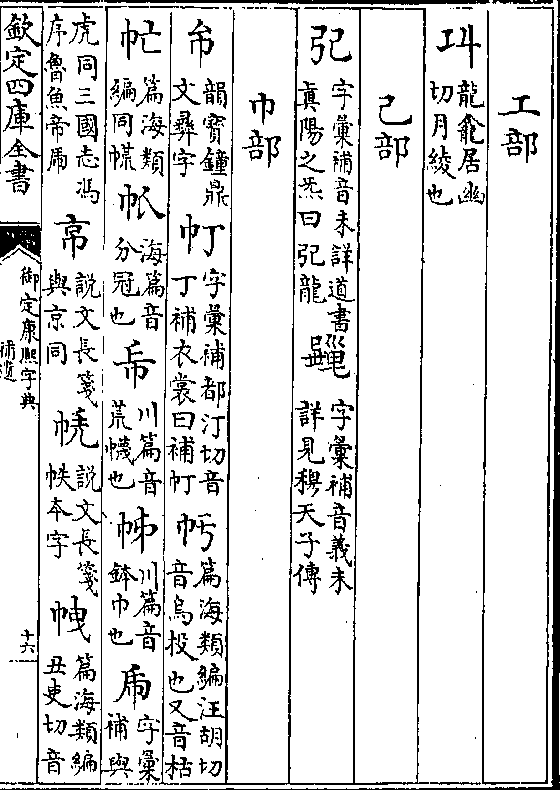 工部
龍龕居幽切月綾也
己部
字彙補音未詳道書真陽之炁曰龍
字彙補音義未詳見穆天子傳
巾部
韻寶鐘鼎文彞字 帄 字彙補都汀切音丁補衣裳曰補帄 篇海類編汪胡切音烏投也又音枯
篇海類編同 海篇音分冠也 川篇音荒幭也 川篇音鉢巾也 字彙補與
虎同三國志馮序魯魚帝虎 説文長箋與京同 説文長箋帙本字 篇海類編丑曳切音
欽定四庫全書 御定康熙字典 補遺 十六